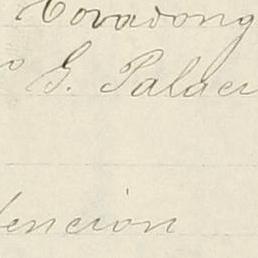 Covadong
o G. Palaci
tención